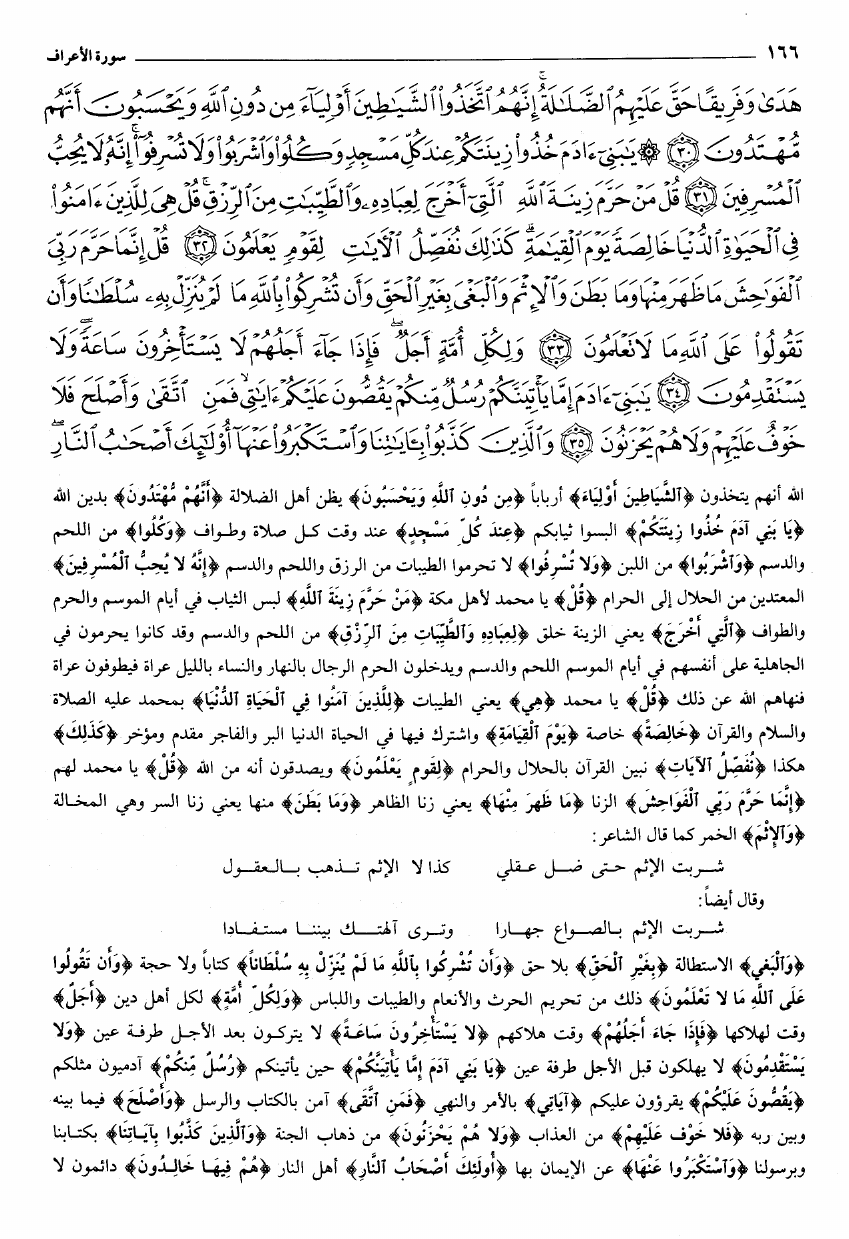 ١٦٦ سورة الأعراف
هَدَىٰ وَفَرِيقًا حَقَّ عَلَيْهِمُ ٱلضَّلَٰلَةُۗ إِنَّهُمُ ٱتَّخَذُوا۟ ٱلشَّيَٰطِينَ أَوْلِيَآءَ مِن دُونِ ٱللَّهِ وَيَحْسَبُونَ أَنَّهُم
مُّهْتَدُونَ ﴿٣٠﴾ ۞ يَٰبَنِىٓ ءَادَمَ خُذُوا۟ زِينَتَكُمْ عِندَ كُلِّ مَسْجِدٍ وَكُلُوا۟ وَٱشْرَبُوا۟ وَلَا تُسْرِفُوٓا۟ۚ إِنَّهُۥ لَا يُحِبُّ
ٱلْمُسْرِفِينَ ﴿٣١﴾ قُلْ مَنْ حَرَّمَ زِينَةَ ٱللَّهِ ٱلَّتِىٓ أَخْرَجَ لِعِبَادِهِۦ وَٱلطَّيِّبَٰتِ مِنَ ٱلرِّزْقِۚ قُلْ هِىَ لِلَّذِينَ ءَامَنُوا۟
فِى ٱلْحَيَوٰةِ ٱلدُّنْيَا خَالِصَةً يَوْمَ ٱلْقِيَٰمَةِۗ كَذَٰلِكَ نُفَصِّلُ ٱلْءَايَٰتِ لِقَوْمٍ يَعْلَمُونَ ﴿٣٢﴾ قُلْ إِنَّمَا حَرَّمَ رَبِّىَ
ٱلْفَوَٰحِشَ مَا ظَهَرَ مِنْهَا وَمَا بَطَنَ وَٱلْإِثْمَ وَٱلْبَغْىَ بِغَيْرِ ٱلْحَقِّ وَأَن تُشْرِكُوا۟ بِٱللَّهِ مَا لَمْ يُنَزِّلْ بِهِۦ سُلْطَٰنًا وَأَن
تَقُولُوا۟ عَلَى ٱللَّهِ مَا لَا تَعْلَمُونَ ﴿٣٣﴾ وَلِكُلِّ أُمَّةٍ أَجَلٌۖ فَإِذَا جَآءَ أَجَلُهُمْ لَا يَسْتَأْخِرُونَ سَاعَةًۖ وَلَا
يَسْتَقْدِمُونَ ﴿٣٤﴾ يَٰبَنِىٓ ءَادَمَ إِمَّا يَأْتِيَنَّكُمْ رُسُلٌ مِّنكُمْ يَقُصُّونَ عَلَيْكُمْ ءَايَٰتِىۙ فَمَنِ ٱتَّقَىٰ وَأَصْلَحَ فَلَا
خَوْفٌ عَلَيْهِمْ وَلَا هُمْ يَحْزَنُونَ ﴿٣٥﴾ وَٱلَّذِينَ كَذَّبُوا۟ بِـَٔايَٰتِنَا وَٱسْتَكْبَرُوا۟ عَنْهَآ أُو۟لَٰٓئِكَ أَصْحَٰبُ ٱلنَّارِۖ
الله أنهم يتخذون ﴿ٱلشَّيَاطِينَ أَوْلِيَاءَ﴾ أرباباً ﴿مِن دُونِ ٱللَّهِ وَيَحْسَبُونَ﴾ يظن أهل الضلالة ﴿أَنَّهُمْ مُّهْتَدُونَ﴾ بدين الله
﴿يَا بَنِي آدَمَ خُذُوا زِينَتَكُمْ﴾ البسوا ثيابكم ﴿عِندَ كُلِّ مَسْجِدٍ﴾ عند وقت كل صلاة وطواف ﴿وَكُلُوا﴾ من اللحم
والدسم ﴿وَٱشْرَبُوا﴾ من اللبن ﴿وَلا تُسْرِفُوا﴾ لا تحرموا الطيبات من الرزق واللحم والدسم ﴿إِنَّهُ لا يُحِبُّ ٱلْمُسْرِفِينَ﴾
المعتدين من الحلال إلى الحرام ﴿قُلْ﴾ يا محمد لأهل مكة ﴿مَنْ حَرَّمَ زِينَةَ ٱللَّهِ﴾ لبس الثياب في أيام الموسم والحرم
والطواف ﴿ٱلَّتِي أَخْرَجَ﴾ يعني الزينة خلق ﴿لِعِبَادِهِ وَٱلطَّيِّبَاتِ مِنَ ٱلرِّزْقِ﴾ من اللحم والدسم وقد كانوا يحرمون في
الجاهلية على أنفسهم في أيام الموسم اللحم والدسم ويدخلون الحرم الرجال بالنهار والنساء بالليل عراة فيطوفون عراة
فنهاهم الله عن ذلك ﴿قُلْ﴾ يا محمد ﴿هِي﴾ يعني الطيبات ﴿لِلَّذِينَ آمَنُوا فِي ٱلْحَيَاةِ ٱلدُّنْيَا﴾ بمحمد عليه الصلاة
والسلام والقرآن ﴿خَالِصَةً﴾ خاصة ﴿يَوْمَ ٱلْقِيَامَةِ﴾ واشترك فيها في الحياة الدنيا البر والفاجر مقدم ومؤخر ﴿كَذَلِكَ﴾
هكذا ﴿نُفَصِّلُ ٱلآيَاتِ﴾ نبين القرآن بالحلال والحرام ﴿لِقَومٍ يَعْلَمُونَ﴾ ويصدقون أنه من الله ﴿قُلْ﴾ يا محمد لهم
﴿إِنَّمَا حَرَّمَ رَبِّي ٱلْفَوَاحِشَ﴾ الزنا ﴿مَا ظَهَرَ مِنْهَا﴾ يعني زنا الظاهر ﴿وَمَا بَطَنَ﴾ منها يعني زنا السر وهي المخالة
﴿وَٱلإِثْمَ﴾ الخمر كما قال الشاعر:
شربت الإثم حتى ضل عقلي كذا لا الإثم تذهب بالعقول
وقال أيضاً:
شربت الإثم بالصواع جهارا وترى آلهتك بيننا مستفادا
﴿وَٱلْبَغي﴾ الاستطالة ﴿بِغَيْرِ ٱلْحَقِّ﴾ بلا حق ﴿وَأَن تُشْرِكُوا بِٱللَّهِ مَا لَمْ يُنَزِّلْ بِهِ سُلْطَاناً﴾ كتاباً ولا حجة ﴿وَأَن تَقُولُوا
عَلَى ٱللَّهِ مَا لا تَعْلَمُونَ﴾ ذلك من تحريم الحرث والأنعام والطيبات واللباس ﴿وَلِكُلِّ أُمَّةٍ﴾ لكل أهل دين ﴿أَجَلٌ﴾
وقت لهلاكها ﴿فَإِذَا جَاءَ أَجَلُهُمْ﴾ وقت هلاكهم ﴿لا يَسْتَأْخِرُونَ سَاعَةً﴾ لا يتركون بعد الأجل طرفة عين ﴿وَلا
يَسْتَقْدِمُونَ﴾ لا يهلكون قبل الأجل طرفة عين ﴿يَا بَنِي آدَمَ إِمَّا يَأْتِيَنَّكُمْ﴾ حين يأتينكم ﴿رُسُلٌ مِّنكُمْ﴾ آدميون مثلكم
﴿يَقُصُّونَ عَلَيْكُمْ﴾ يقرؤون عليكم ﴿آيَاتِي﴾ بالأمر والنهي ﴿فَمَنِ ٱتَّقَى﴾ آمن بالكتاب والرسل ﴿وَأَصْلَحَ﴾ فيما بينه
وبين ربه ﴿فَلا خَوْف عَلَيْهِمْ﴾ من العذاب ﴿وَلا هُمْ يَحْزَنُونَ﴾ من ذهاب الجنة ﴿وَٱلَّذِينَ كَذَّبُوا بِآيَاتِنَا﴾ بكتابنا
وبرسولنا ﴿وَٱسْتَكْبَرُوا عَنْهَا﴾ عن الإيمان بها ﴿أُولَئِكَ أَصْحَابُ ٱلنَّارِ﴾ أهل النار ﴿هُمْ فِيهَا خَالِدُونَ﴾ دائمون لا